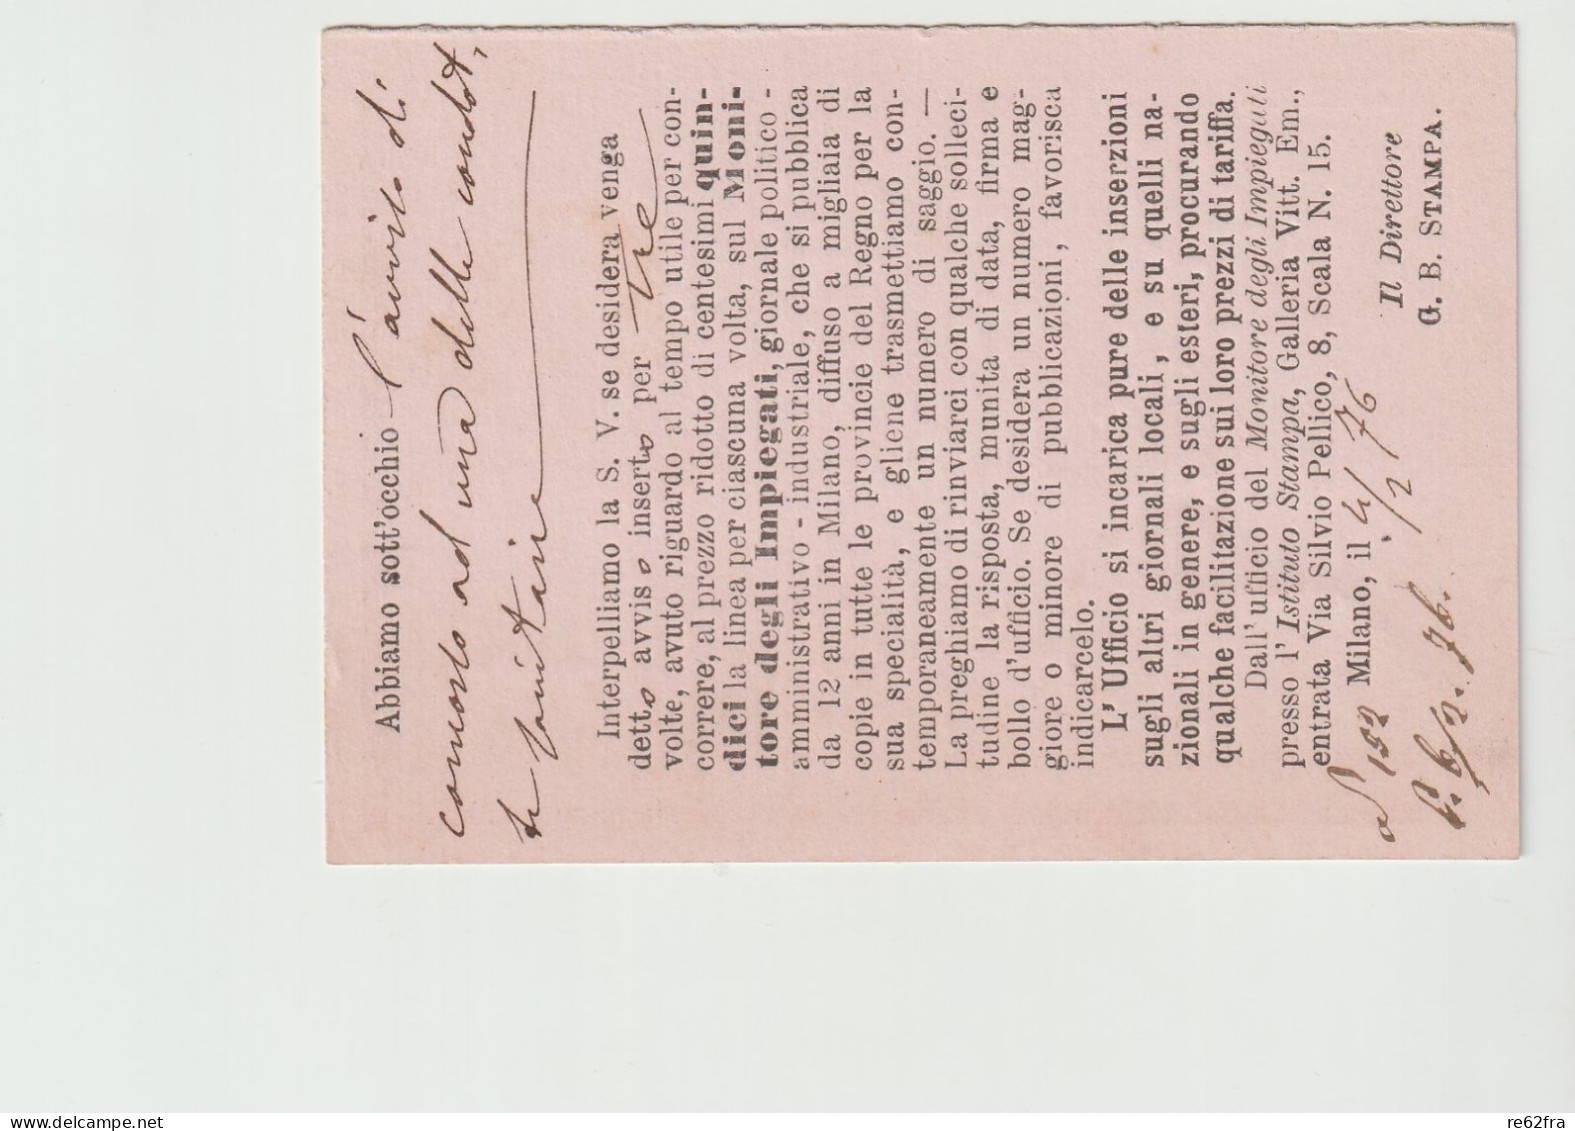 Abbiamo sott'occhio l'avviso di
concorso ad una delle condot,
te sanitarie
Interpelliamo la S. V. se desidera venga
detto avviso inserto per tre
volte, avuto riguardo al tempo utile per con-
correre, al prezzo ridotto di centesimi quin-
dici la linea per ciascuna volta, sul Moni-
tore degli Impiegati, giornale politico -
amministrativo - industriale, che si pubblica
da 12 anni in Milano, diffuso a migliaia di
copie in tutte le provincie del Regno per la
sua specialità, e gliene trasmettiamo con-
temporaneamente un numero di saggio. —
La preghiamo di rinviarci con qualche solleci-
tudine la risposta, munita di data, firma e
bollo d'ufficio. Se desidera un numero mag-
giore o minore di pubblicazioni, favorisca
indicarcelo.
L' Ufficio si incarica pure delle inserzioni
sugli altri giornali locali, e su quelli na-
zionali in genere, e sugli esteri, procurando
qualche facilitazione sui loro prezzi di tariffa.
Dall' ufficio del Monitore degli Impiegati
presso l' Istituto Stampa, Galleria Vitt. Em.,
entrata Via Silvio Pellico, 8, Scala N. 15.
Milano, il 4/2 76
Il Direttore
G. B. STAMPA.
152
6/2. 76.
delcampe.net
re62fra